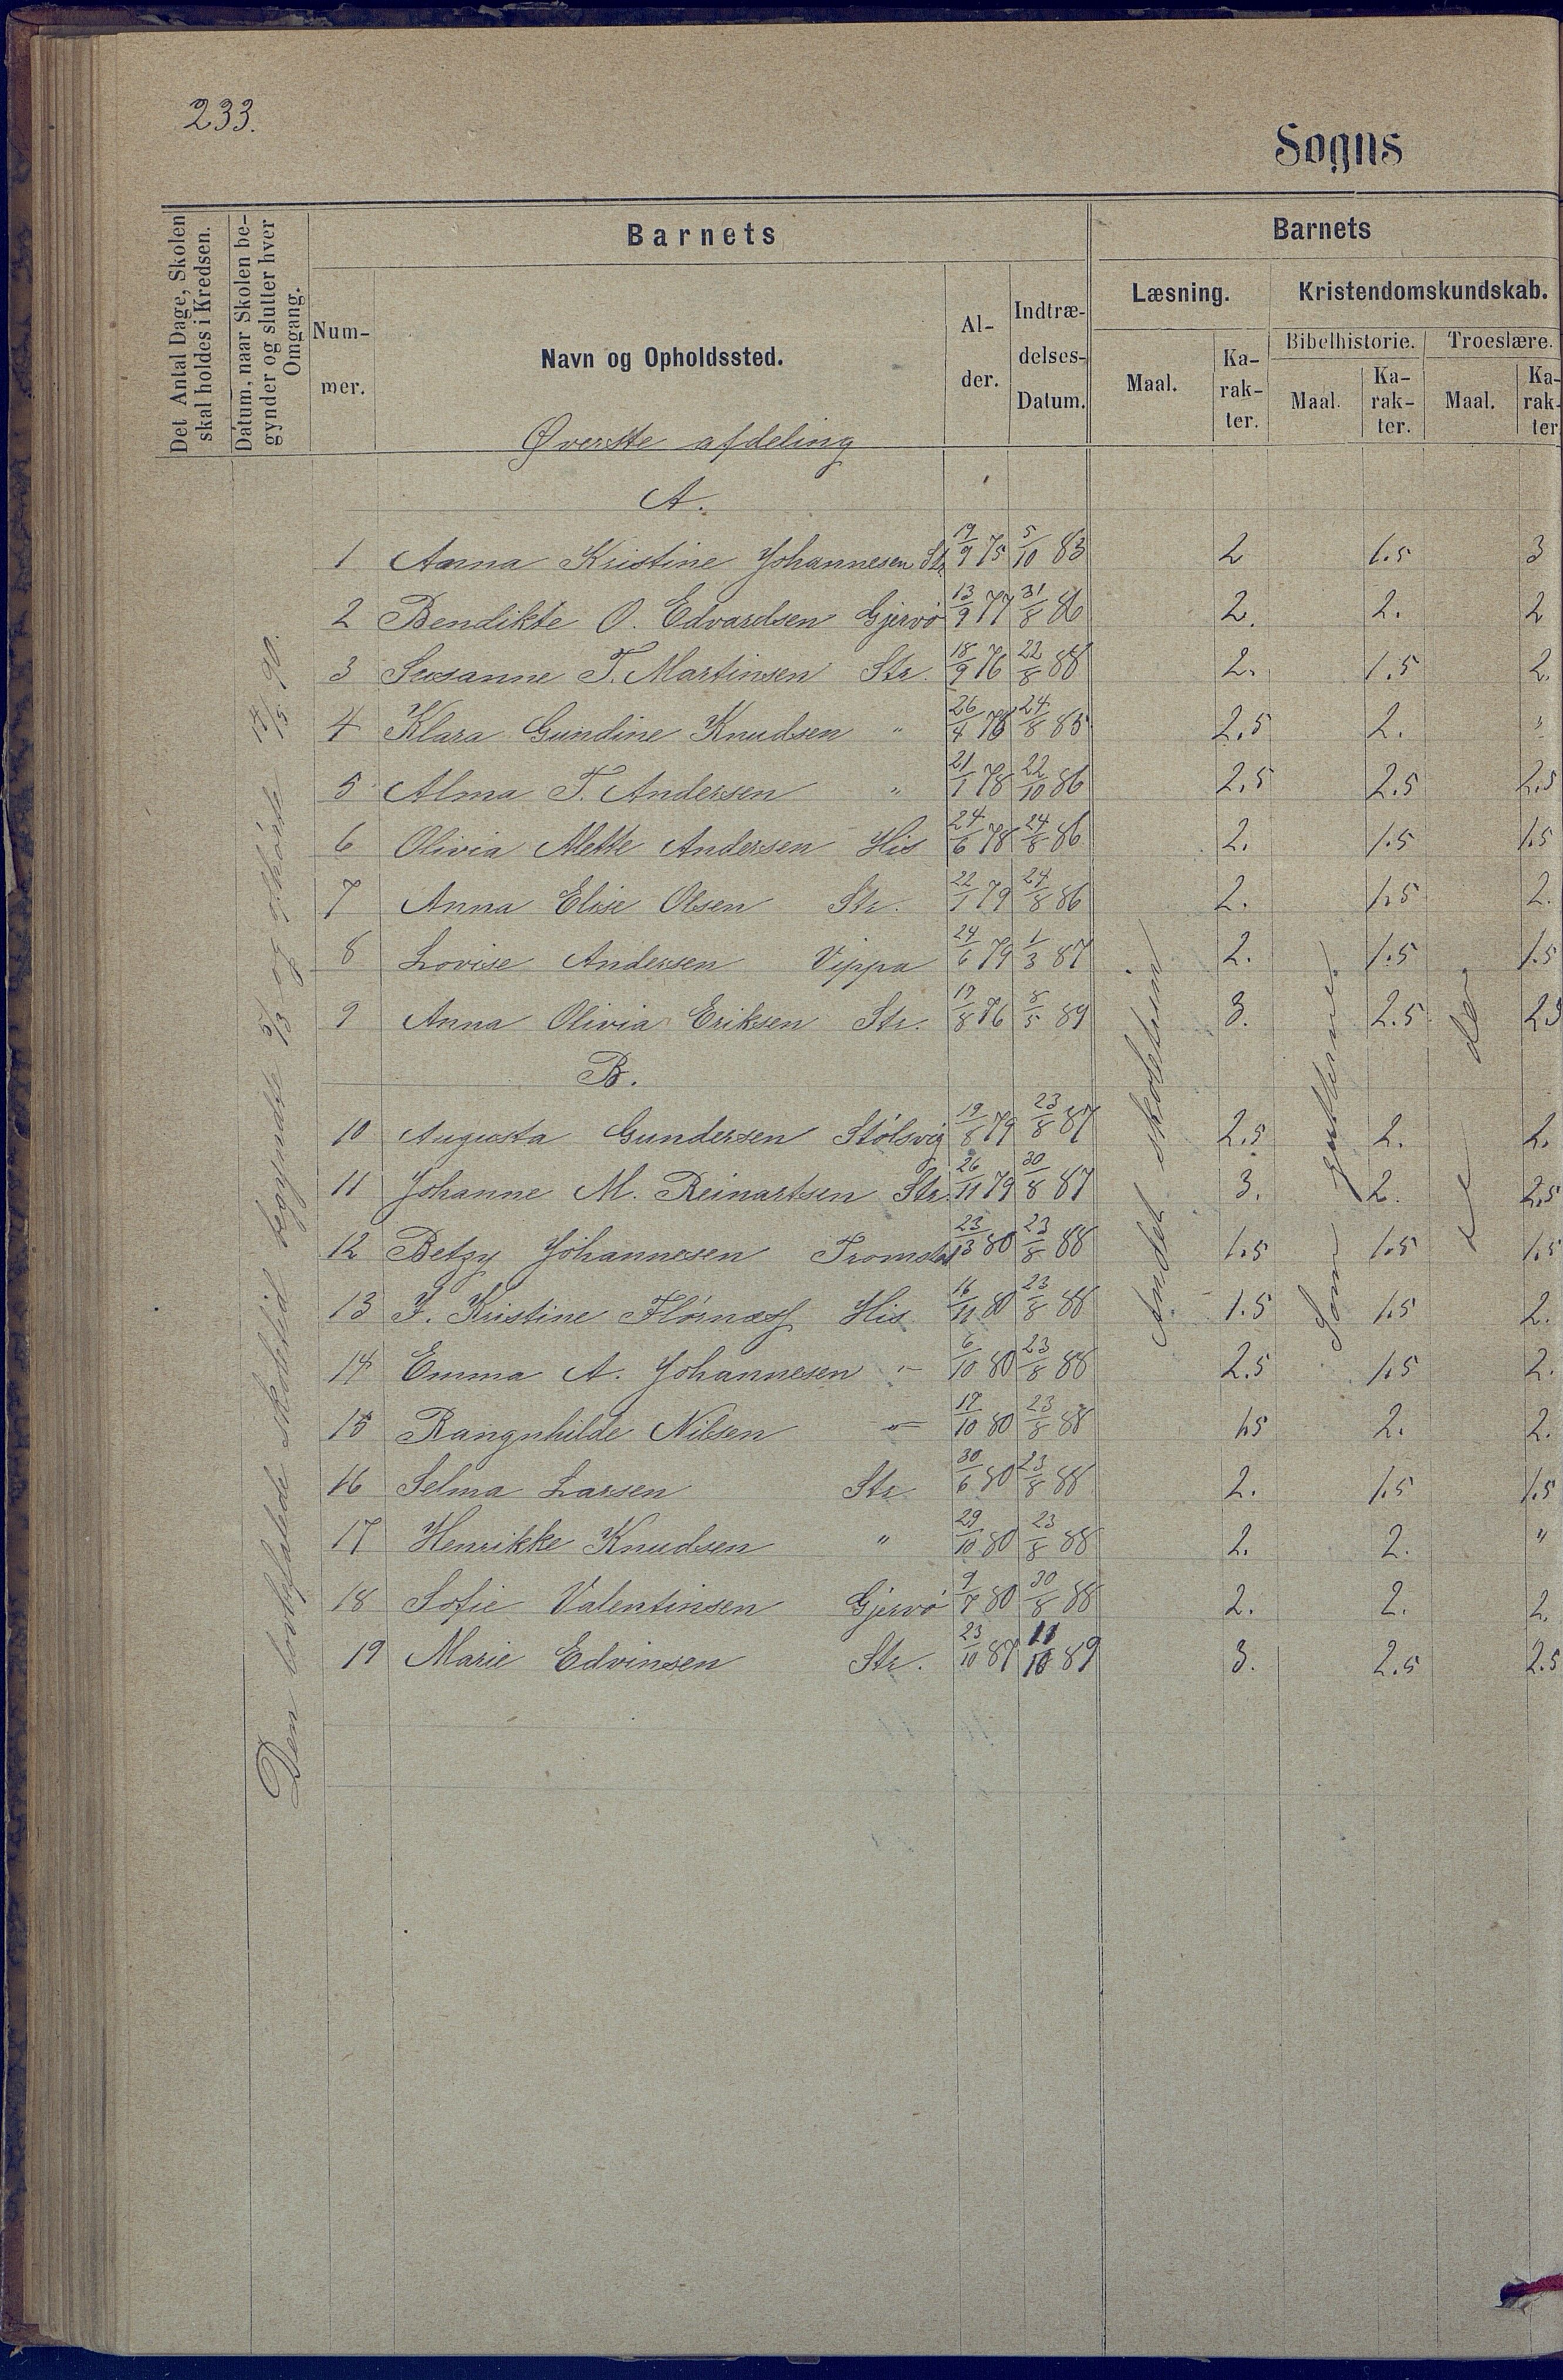 233.
Sogns
Det Antal Dage, Skolen
skal holdes i Kredsen.
Datum, naar Skolen be-
gynder og slutter hver
Omgang.
Barnets
Num-
mer.
Navn og Opholdssted.
Al-
der.
Indtræ-
delses-
Datum.
Barnets
Læsning.
Kristendomskundskab.
Maal.
Ka-
rak-
ter.
Bibelhistorie.
Troeslære.
Maal.
Ka-
rak-
ter.
Maal.
Ka-
rak-
ter
Øverste afdeling
A.
1 Anna Kristine Johannesen Str 19/9 75 5/10 83 2 1.5 3
2 Bendikte O. Edvardsen Gjervø 13/9 77 31/8 86 2. 2. 2
3 Susanne T. Martinsen Str. 18/9 76 22/8 88 2. 1.5 2.
4 Klara Gundine Knudsen " 26/4 78 24/8 85 2.5 2. "
5 Alma T. Andersen " 21/1 78 22/10 86 2.5 2.5 2.5
6 Olivia Mette Andersen His 24/6 78 24/8 86 2. 1.5 1.5
7 Anna Elise Olsen Str. 22/1 79 24/8 86 2. 1.5 2.
8 Lovise Andersen Vippa 24/6 79 1/3 87 2. 1.5 1.5
9 Anna Olivia Eriksen Str. 17/8 76 8/5 89 3. 2.5 2.5
B.
10 Augusta Gundersen Stølsvig 19/8 79 23/8 87 2.5 2. 2.
11 Johanne M. Reinartsen Str. 26/11 79 30/8 87 3. 2. 2.5
12 Betzy Johannesen 23/13 80 23/8 88 1.5 1.5 1.5
13 J. Kristine Flørnæss His 16/11 80 23/8 88 1.5 1.5 2.
14 Emma A. Johannesen " 6/10 80 23/8 88 2.5 1.5 2.
15 Rangnhilde Nilsen " 17/10 80 23/8 88 1.5 2. 2.
16 Selma Larsen Str. 30/6 80 23/8 88 2. 1.5 1.5
17 Henrikke Knudsen " 29/10 80 23/8 88 2. 2. "
18 Sofie Valentinsen Gjervø 9/7 80 30/8 88 2. 2. 2.
19 Marie Edvinsen Str. 23/10 87 11/10 89 3. 2.5 2.5
Den lovbefalede skoletid begyndte 5/3 og ophørte 90.
Andet skoletrin
Som gutternes